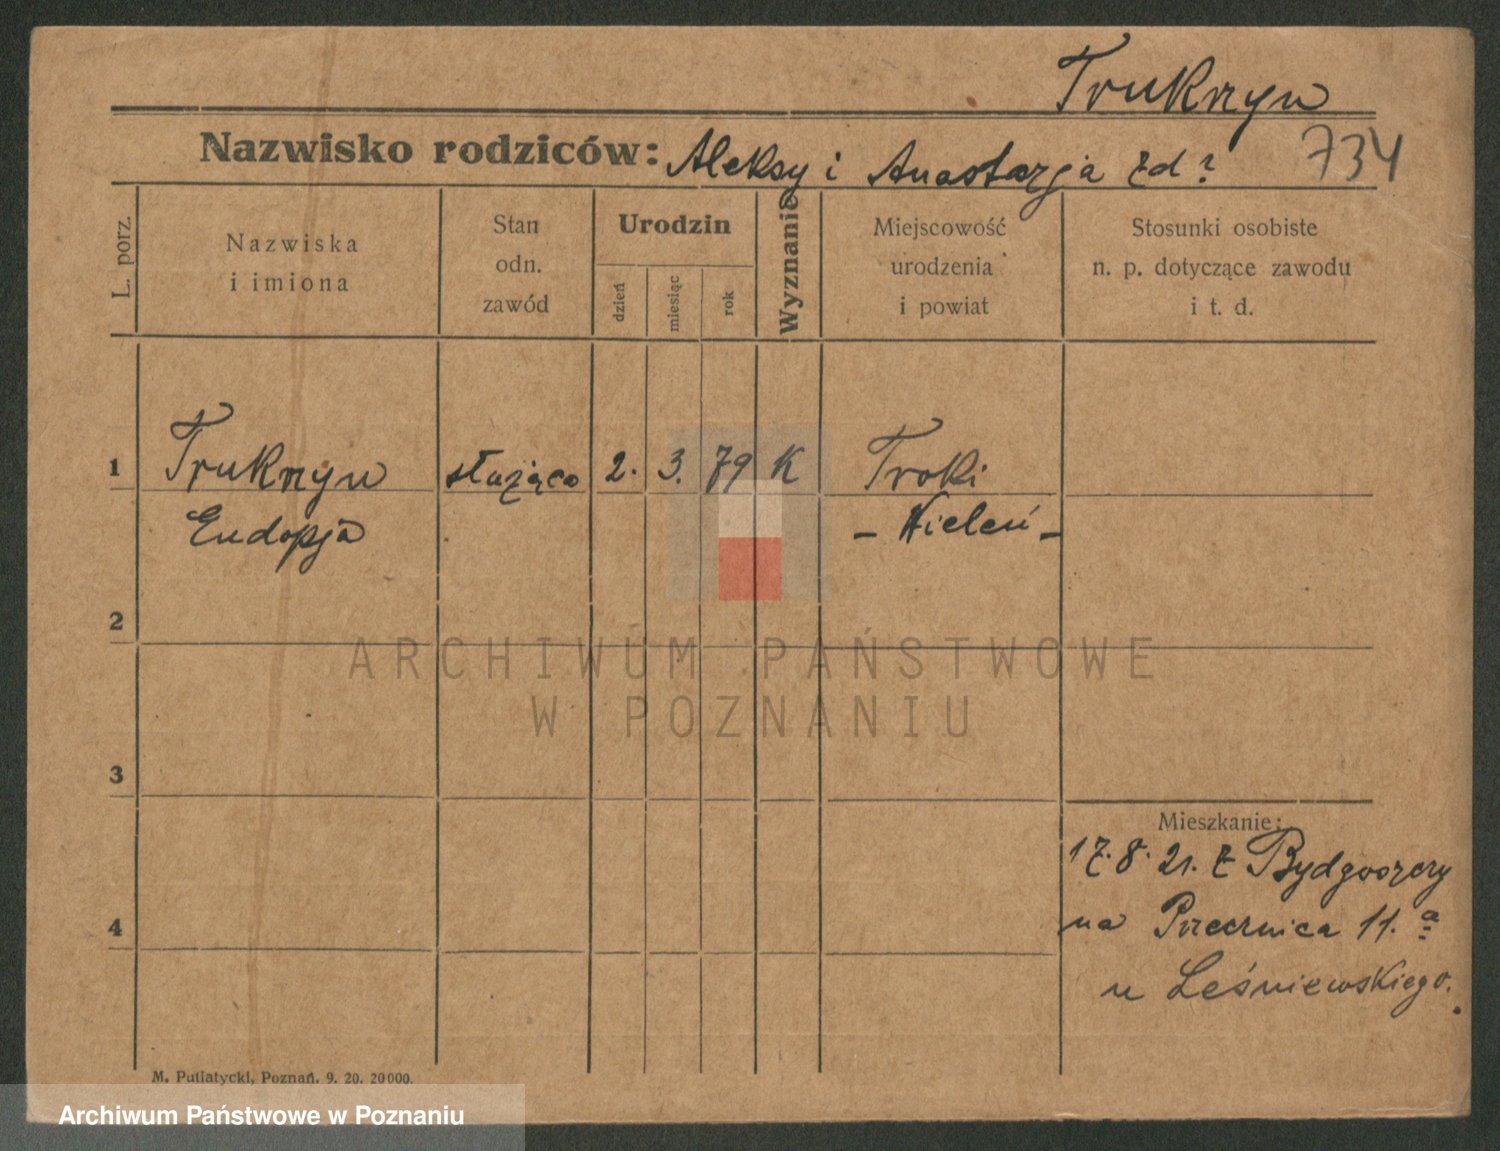 Truknyn
Nazwisko rodziców: Aleksy i Anastazja zd?
734
L. porz.
Nazwiska
i imiona
Stan
odn.
zawód
Urodzin
dzień
miesiąc
rok
Wyznanie
Miejscowość
urodzenia
i powiat
Stosunki osobiste
n. p. dotyczące zawodu
i t. d.
1 Truknyn służąca 2. 3. 79 K Troki
Eudopja - Wieleń -
2
ARCHIWUM PAŃSTWOWE
W POZNANIU
3
Mieszkanie:
17. 8. 21. z Bydgoszczy
4
na Przecznica 11. a
u Leśniewskiego.
M. Putiatycki, Poznań. 9. 20. 20000.
Archiwum Państwowe w Poznaniu